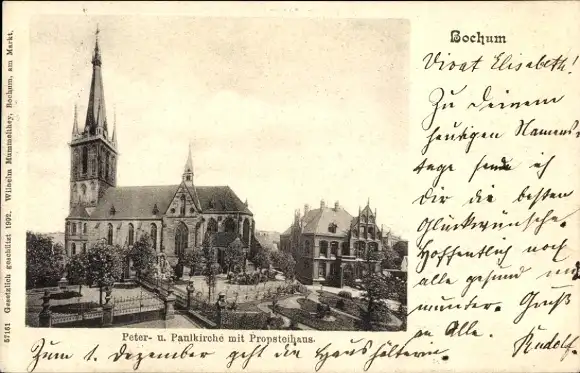 Bochum
Vivat Elisabeth!
Zu deinem
heutigen Namens-
tage sende ich
dir die besten
Glückwünsche.
Hoffentlich noch
alle gesund und
munter. Gruß
an Alle. Rudolf.
Peter- u. Paulkirche mit Propsteihaus.
Zum 1. Dezember geht die Haushälterin.
57151 Gesetzlich geschützt 1902. Wilhelm Mummelthey, Bochum, am Markt.